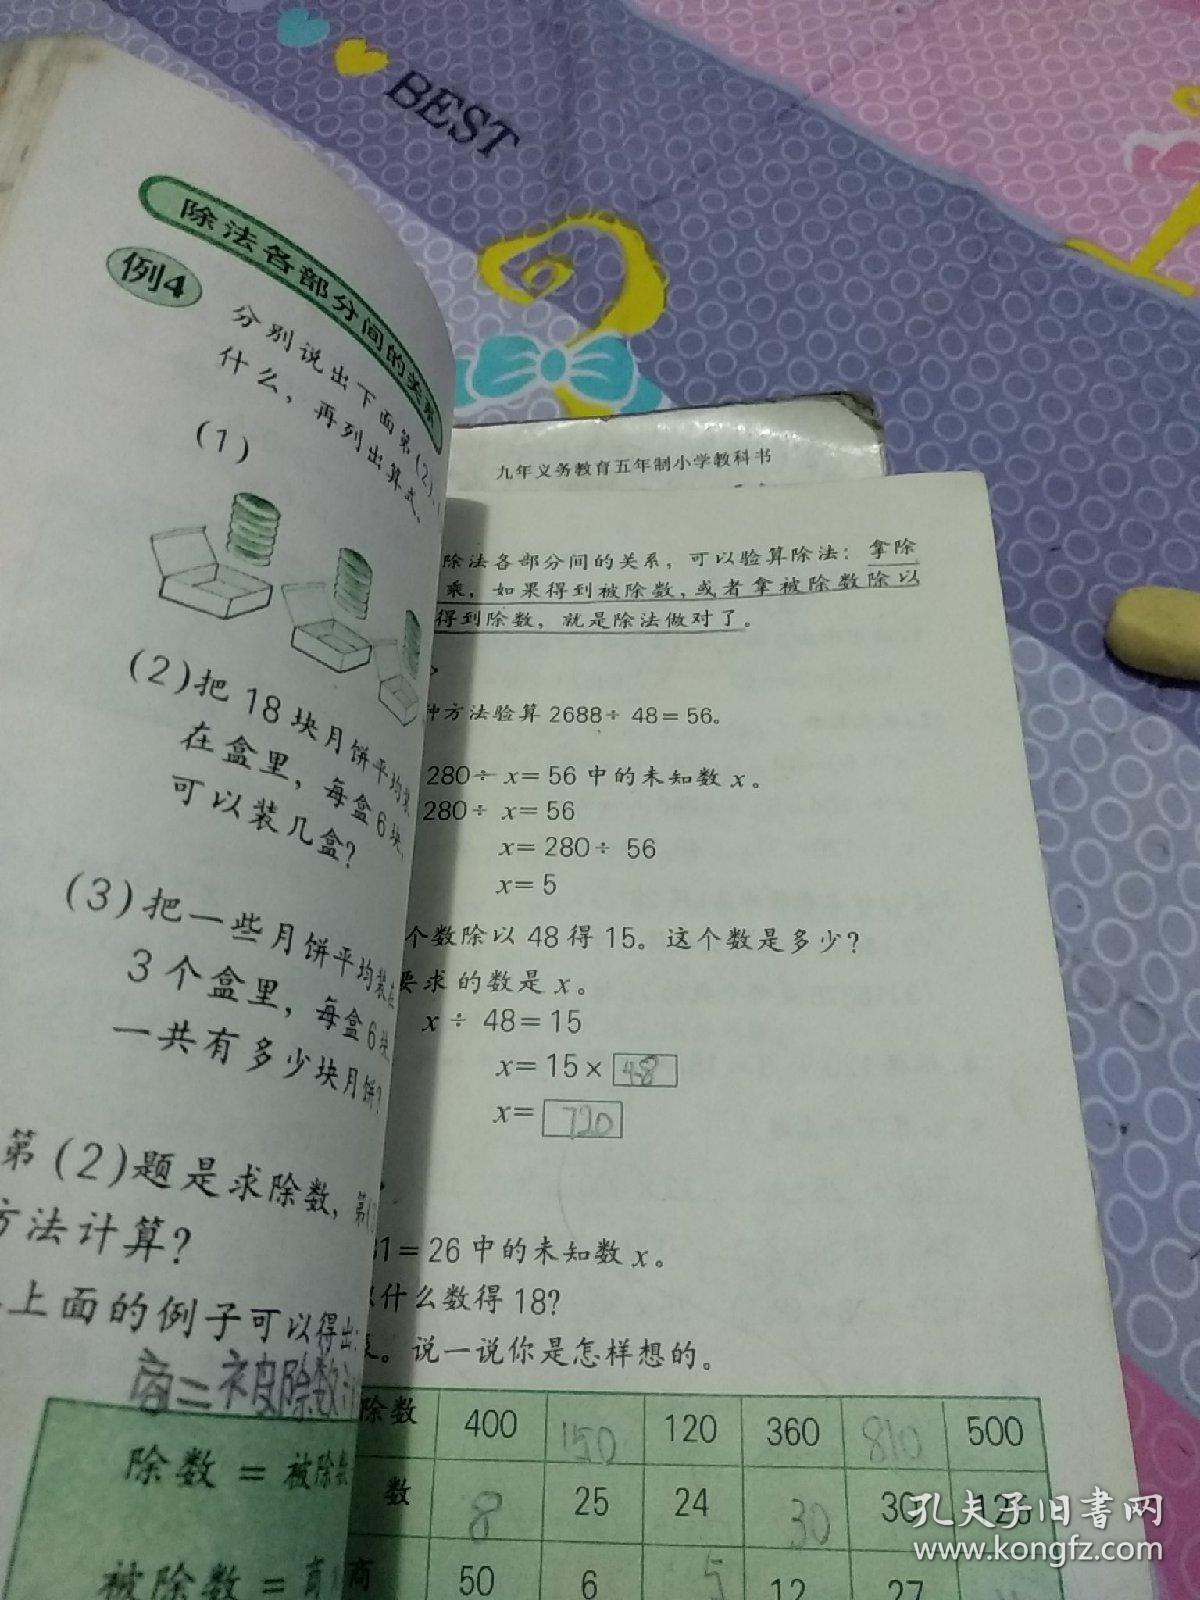 BEST
除法各部分间的关系
例4
分别说出下面第(2)、
什么,再列出算式。
(1)
(2)把18块月饼平均装
在盒里,每盒6块,
可以装几盒?
(3)把一些月饼平均装在
3个盒里,每盒6块,
一共有多少块月饼?
第(2)题是求除数,第(3
方法计算?
上面的例子可以得出:
商=被除数÷
除数=被除数
被除数=商
九年义务教育五年制小学教科书
除法各部分间的关系,可以验算除法:拿除
乘,如果得到被除数,或者拿被除数除以
得到除数,就是除法做对了。
种方法验算2688÷48=56。
280÷x=56中的未知数x。
280÷x=56
x=280÷56
x=5
个数除以48得15。这个数是多少?
要求的数是x。
x÷48=15
x=15×48
x=720
=26中的未知数x。
以什么数得18?
表。说一说你是怎样想的。
除数 400 150 120 360 810 500
数 8 25 24 30 30 125
商 50 6 5 12 27
孔夫子旧书网
www.kongfz.com